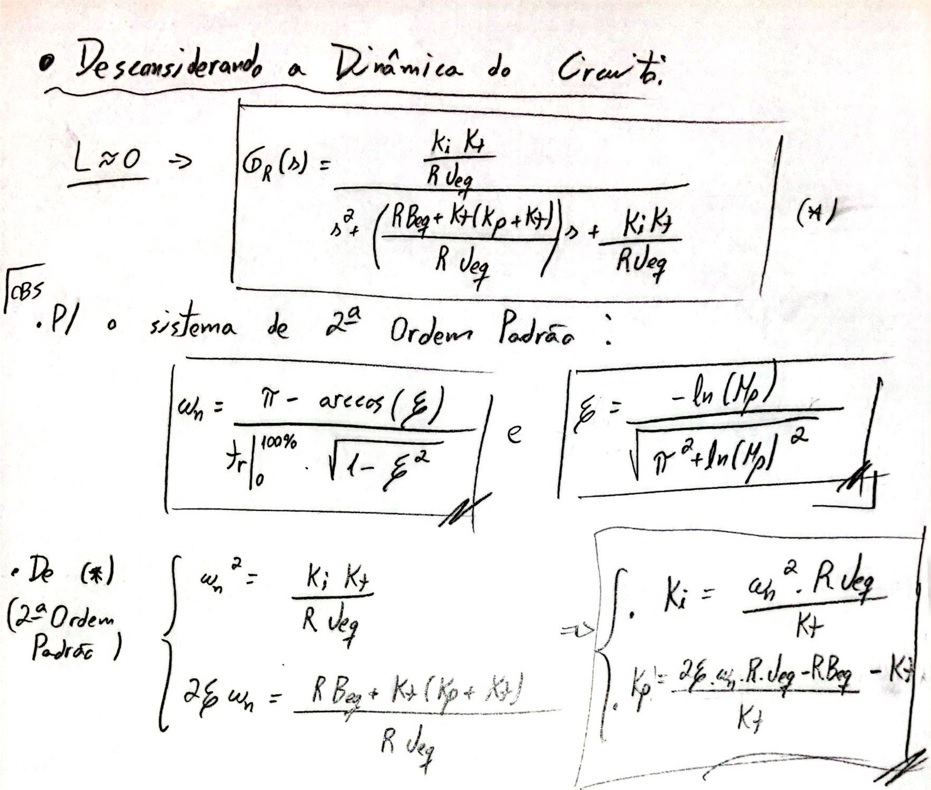 • Desconsiderando a Dinâmica do Circuito:
L ≈ 0 → G_R(s) = (Ki Kt / R Jeq) / (s² + ((R Beq + Kt(Kp + Kt)) / R Jeq) s + Ki Kt / R Jeq) (*)
OBS
. P/ o sistema de 2ª Ordem Padrão :
ωn = (π - arccos(ξ)) / (tr|₀^100% · √(1 - ξ²)) e ξ = -ln(Mp) / √(π² + ln(Mp)²)
• De (*)
(2ª Ordem
Padrão)
ωn² = Ki Kt / R Jeq
2ξ ωn = (R Beq + Kt (Kp + Kt)) / R Jeq
=> . Ki = ωn² . R Jeq / Kt
. Kp = (2ξ.ωn.R.Jeq - R Beq) / Kt - Kt